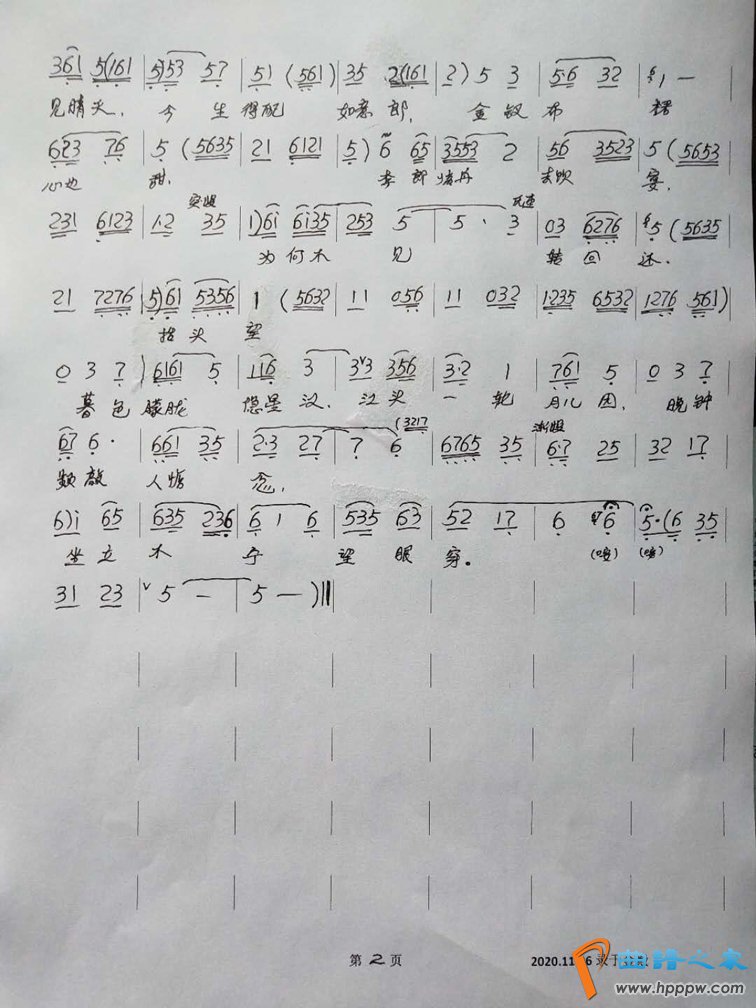 36i 5(161 5)53 57 51 (561) 35 2(161 2) 5 3 5·6 32 1 —
见晴天, 今生得配 如意郎, 金钗布裙
623 76 5 (5635 21 6121 5) 6 65 3553 2 56 3523 5 (5653
心也甜, 李郎 去饮宴,
231 6123 1·2 35 1)6i 6i35 253 5 5 · 3 03 6276 5 (5635
为何不见 转回还.
21 7276 5)61 5356 1 (5632 11 056 11 032 1235 6532 1276 561)
抬头望
0 3 7) 6161 5 116 3 33 356 3·2 1 761 5 0 3 7
暮色朦胧 隐星汉, 江头一轮月儿圆, 晚钟
67 6· 661 35 2·3 27 7 6 (3217 6765 35 6·7 25 32 17
数敲人惦念,
6)i 65 635 236 6 1 6 535 63 52 17 6 6 5·(6 35
坐立不宁望眼穿。 (嗳) (嗳)
31 23 5 — 5 —)
第 2 页 2020.11
曲谱之家
www.hpppw.com